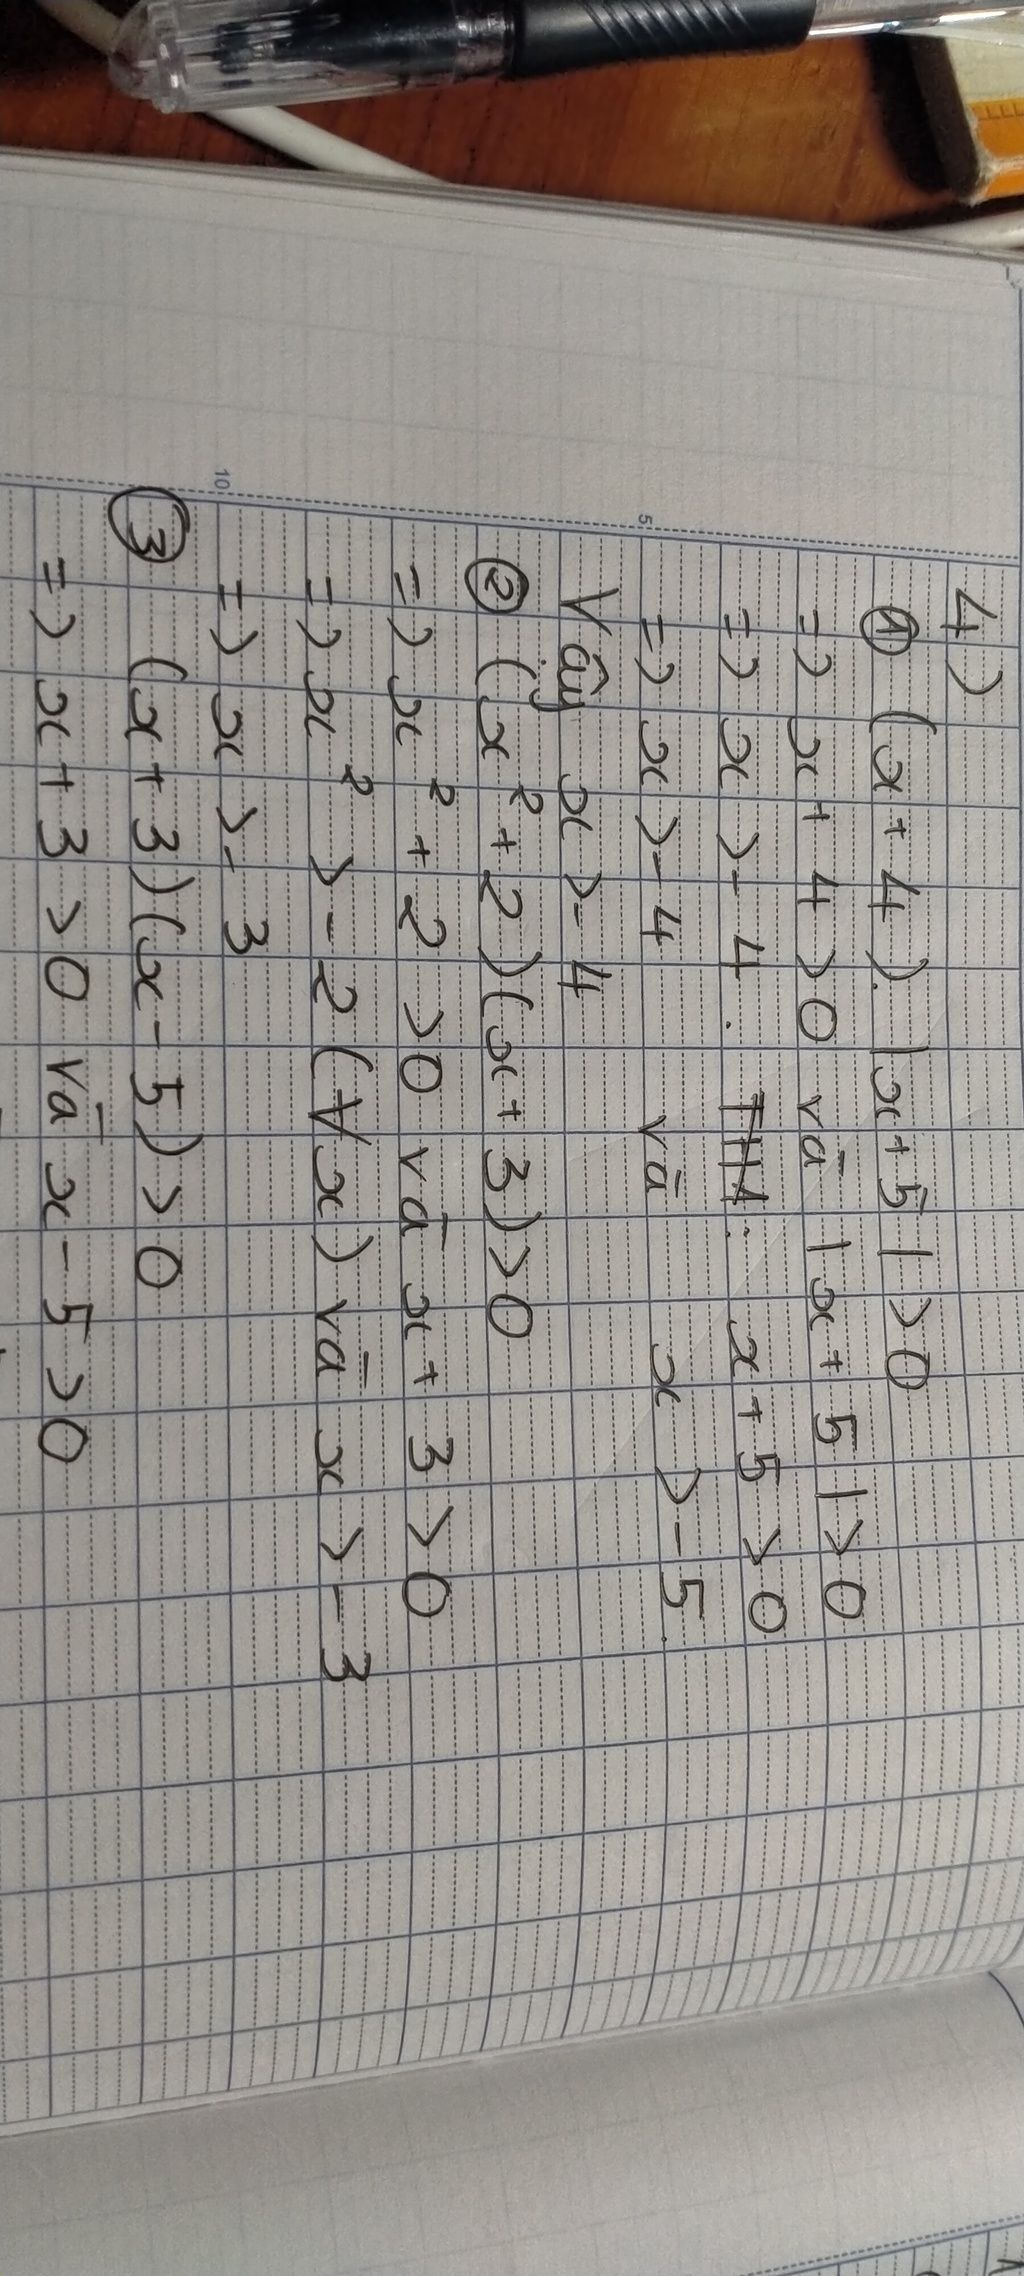 4)
① (x+4).|x+5|>0
=> x+4>0 và |x+5|>0
=> x>-4. x+5>0
=> x>-4 và x>-5.
Vậy x>-4
② (x²+2)(x+3)>0
=> x²+2>0 và x+3>0
=> x²>-2 (∀x) và x>-3
=> x>-3
③ (x+3)(x-5)>0
=> x+3>0 và x-5>0
5
10